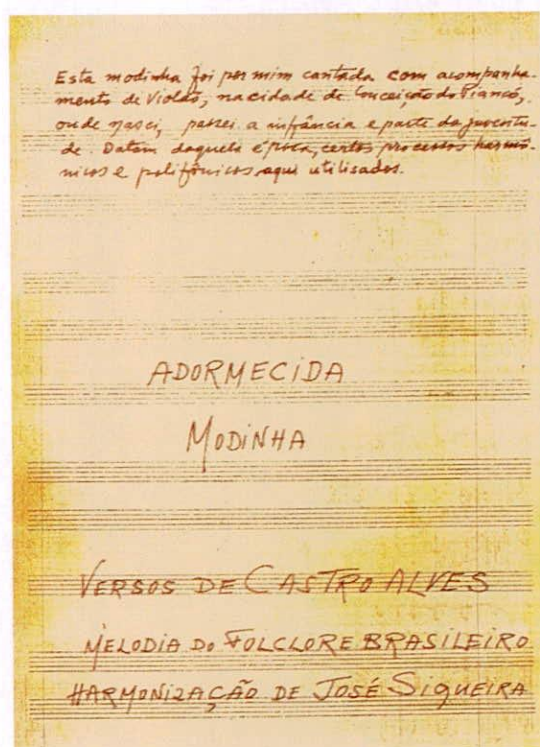 Esta modinha foi por mim cantada com acompanha-
mento de violão, na cidade de Conceição do Piancó,
onde nasci, passei a infância e parte da juventu-
de. Datam daquela época, certos processos harmô-
nicos e polifônicos aqui utilisados.
ADORMECIDA
MODINHA
VERSOS DE CASTRO ALVES
MELODIA DO FOLCLORE BRASILEIRO
HARMONIZAÇÃO DE JOSÉ SIQUEIRA